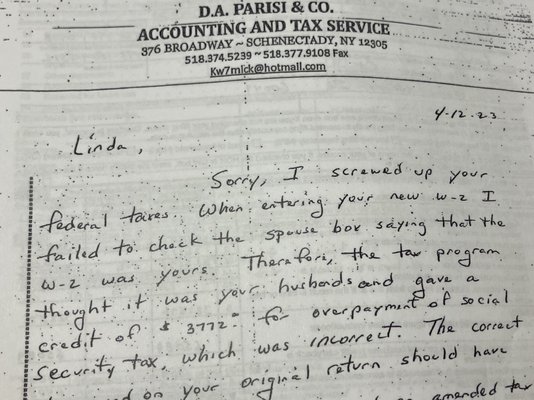 D.A. PARISI & CO.
ACCOUNTING AND TAX SERVICE
376 BROADWAY ~ SCHENECTADY, NY 12305
518.374.5239 ~ 518.377.9108 Fax
Kw7mick@hotmail.com
4-12-23
Linda,
Sorry, I screwed up your
federal taxes. When entering your new W-2 I
failed to check the spouse box saying that the
W-2 was yours. Therefore, the tax program
thought it was your husbands and gave a
credit of $ 3772.00 for overpayment of social
security tax, which was incorrect. The correct
on your original return should have
amended tax